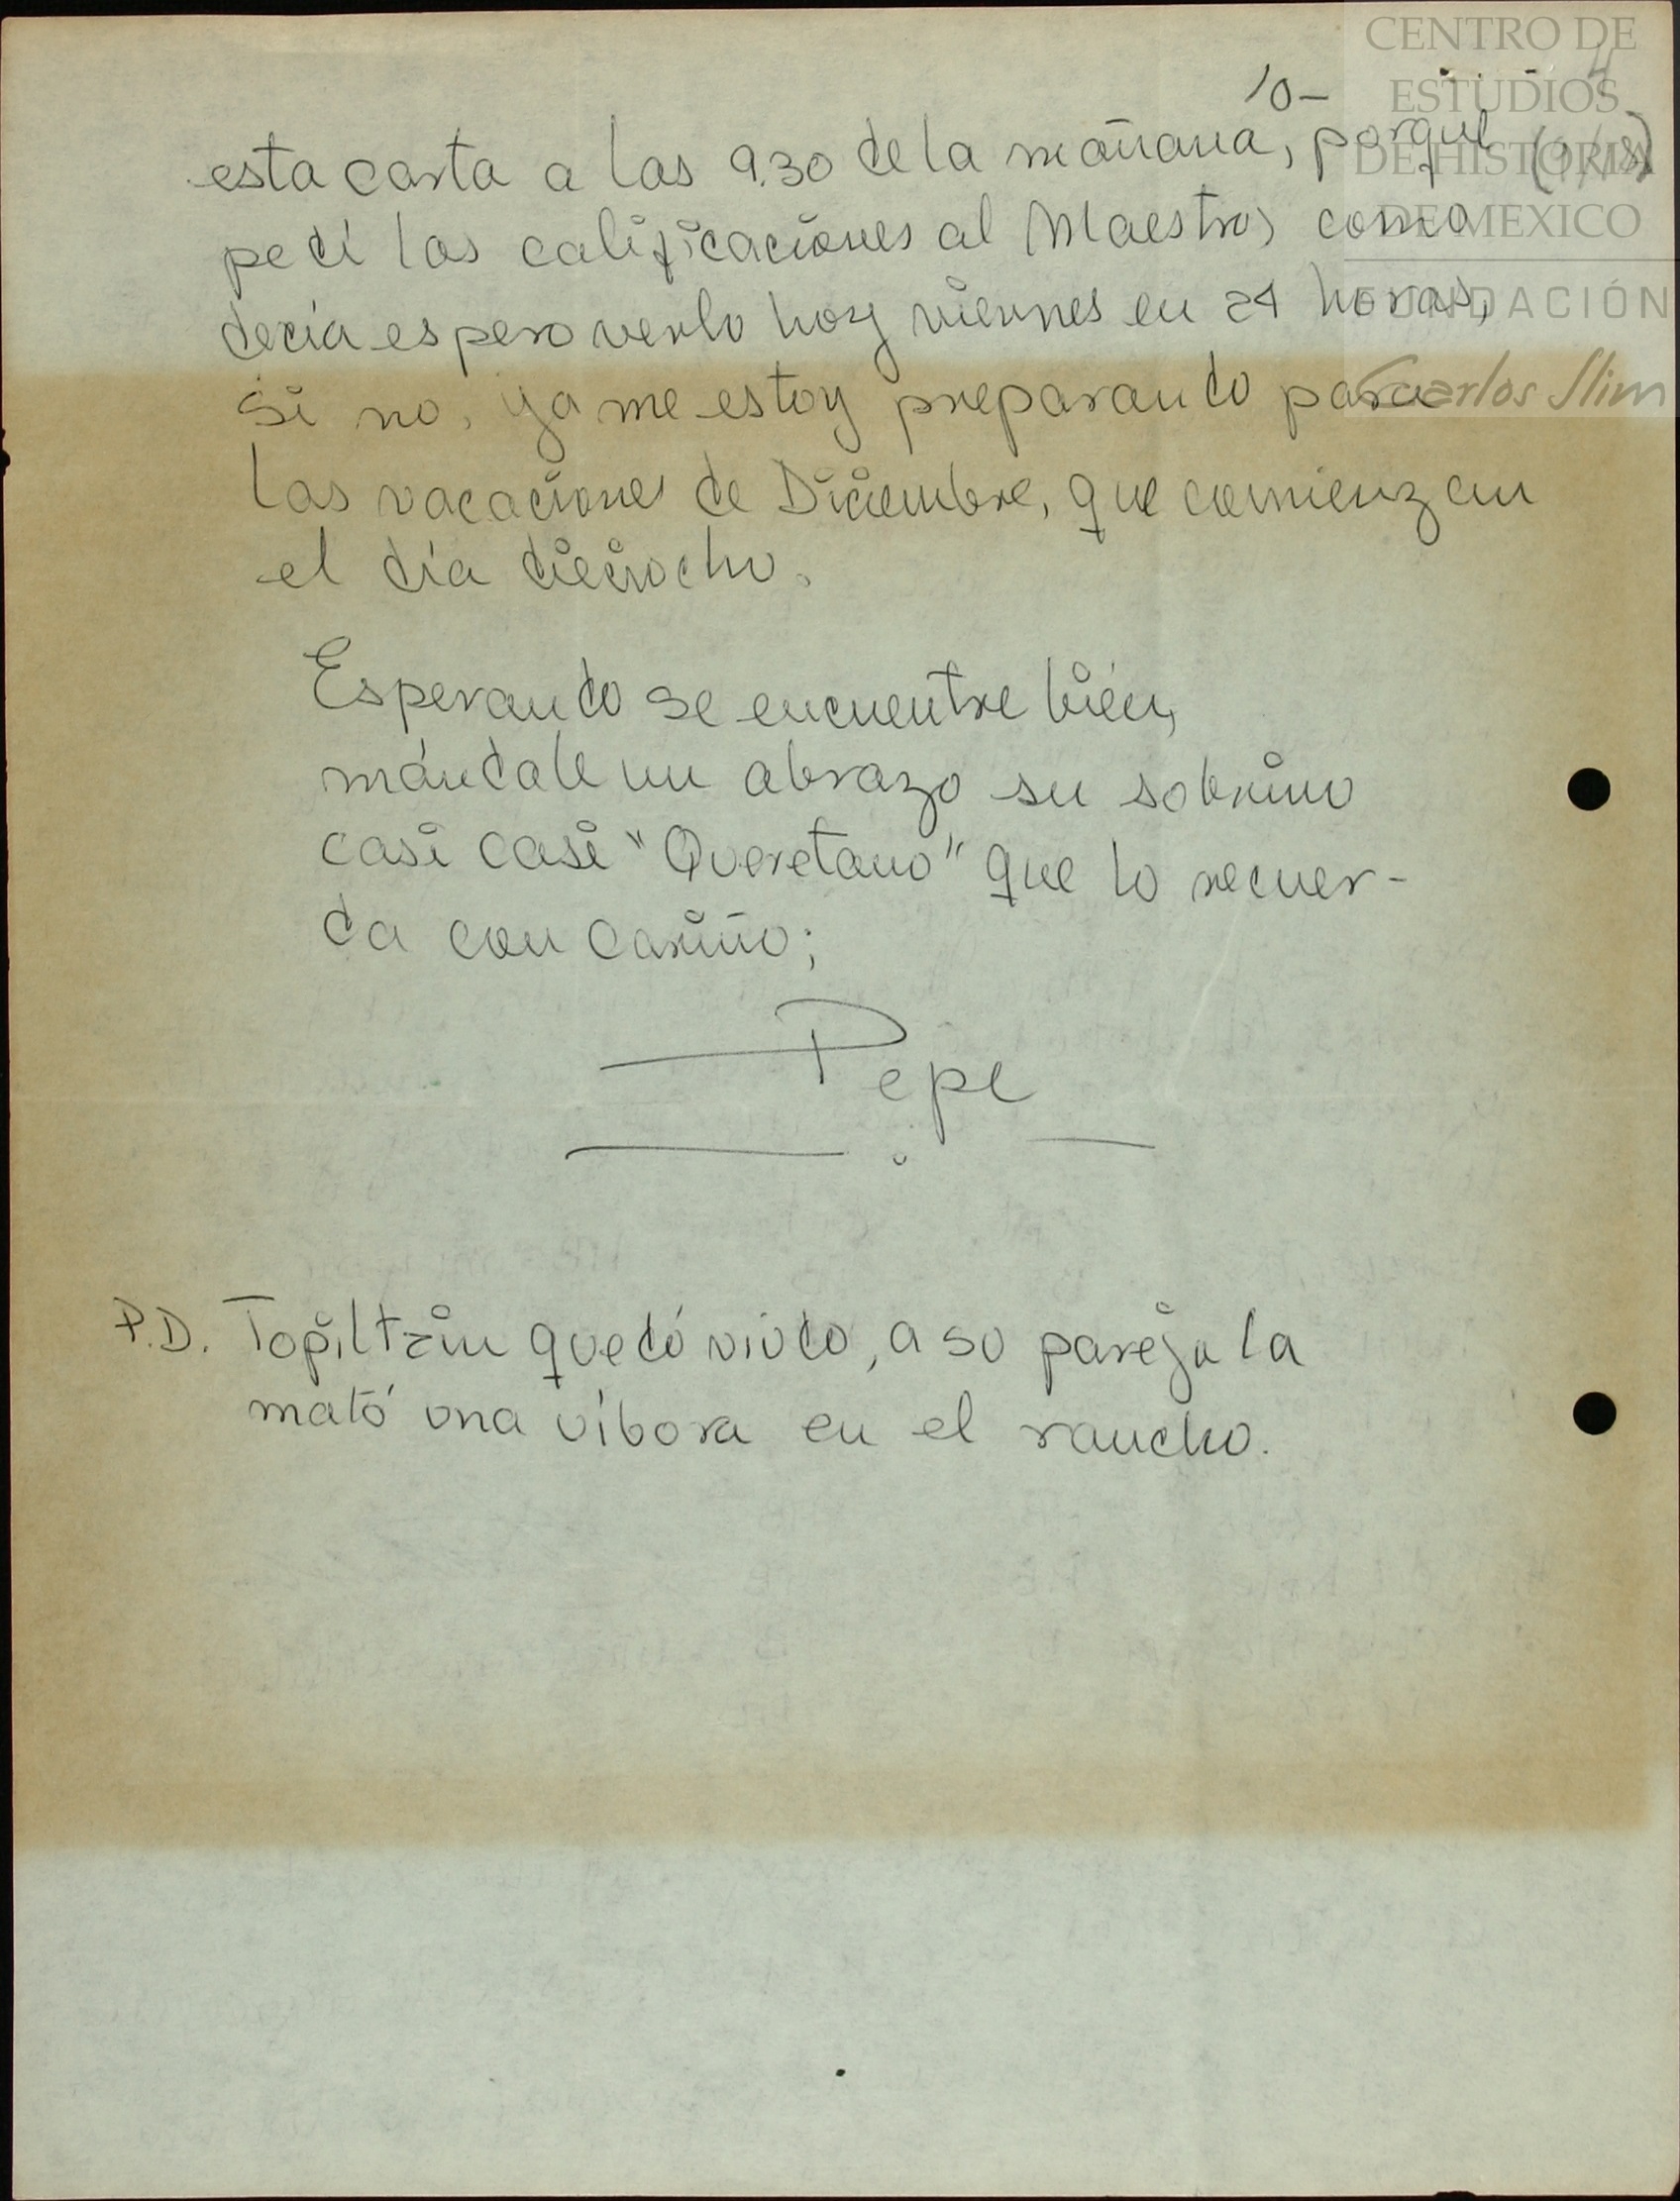 10-
esta carta a las 9.30 de la mañana, porque
pedí las calificaciones al Maestro, como
decía espero verlo hoy viernes en 24 horas,
si no, ya me estoy preparando para
las vacaciones de Diciembre, que comienzan
el día dieciocho.
Esperando se encuentre bién,
mándale un abrazo su sobrino
casi casi "Queretano" que lo recuer-
da con cariño;
Pepe
P.D. Topiltzin quedó viudo, a su pareja la
mató una víbora en el rancho.
CENTRO DE
ESTUDIOS
DE HISTORIA
DE MEXICO
FUNDACIÓN
Carlos Slim